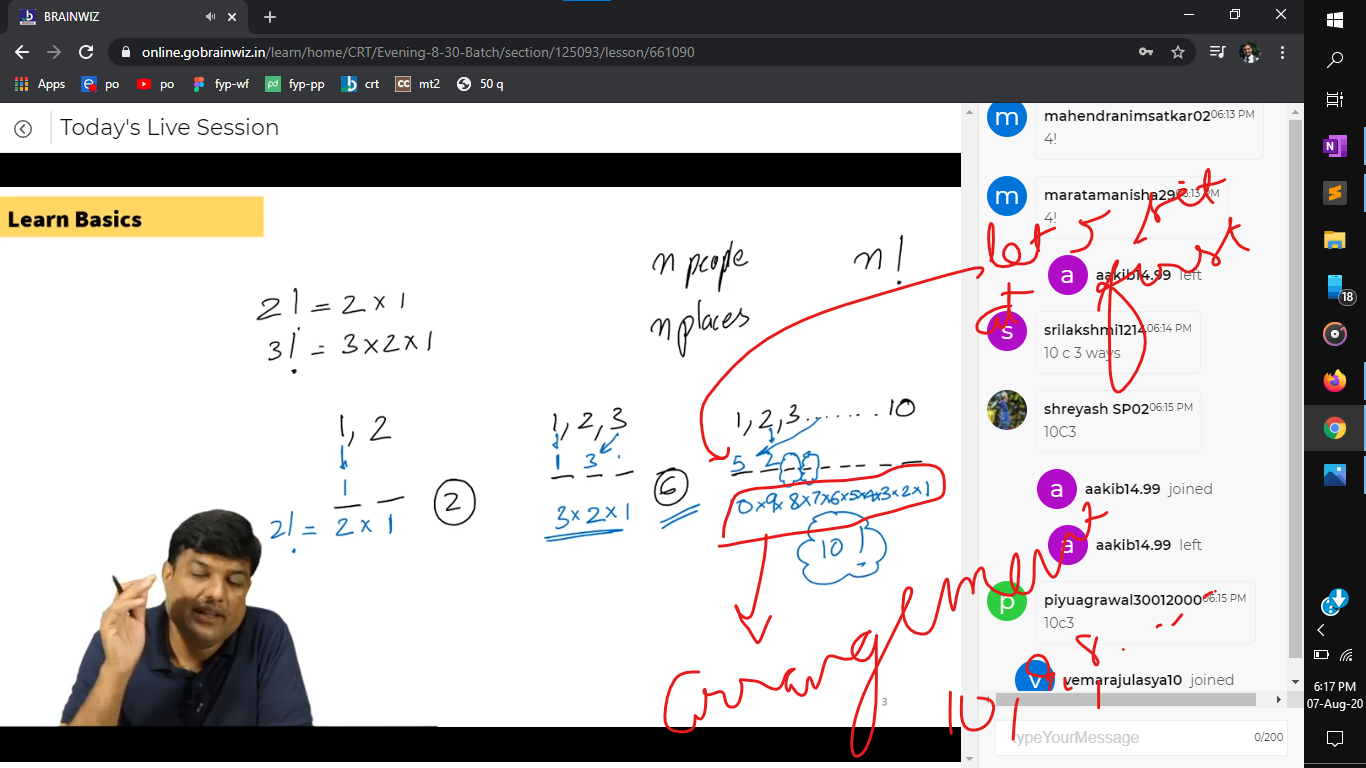 BRAINWIZ
online.gobrainwiz.in/learn/home/CRT/Evening-8-30-Batch/section/125093/lesson/661090
Apps po po fyp-wf fyp-pp crt mt2 50 q
Today's Live Session
Learn Basics
n people n!
n places
2! = 2 × 1
3! = 3 × 2 × 1
1, 2
1
2! = 2 × 1
2
1, 2, 3
1 3
3 × 2 × 1
6
1, 2, 3 . . . . . . . 10
5 2
0 × 9 × 8 × 7 × 6 × 5 × 4 × 3 × 2 × 1
10 !
let 5
at first
arrangement
10, 9, 8
3
m mahendranimsatkar02 06:13 PM
4!
m maratamanisha29 06:13 PM
4!
a aakib14.99 left
s srilakshmi1214 06:14 PM
10 c 3 ways
shreyash SP02 06:15 PM
10C3
a aakib14.99 joined
a aakib14.99 left
p piyuagrawal30012000 06:15 PM
10c3
v vemarajulasya10 joined
typeYourMessage 0/200
18
6:17 PM
07-Aug-20